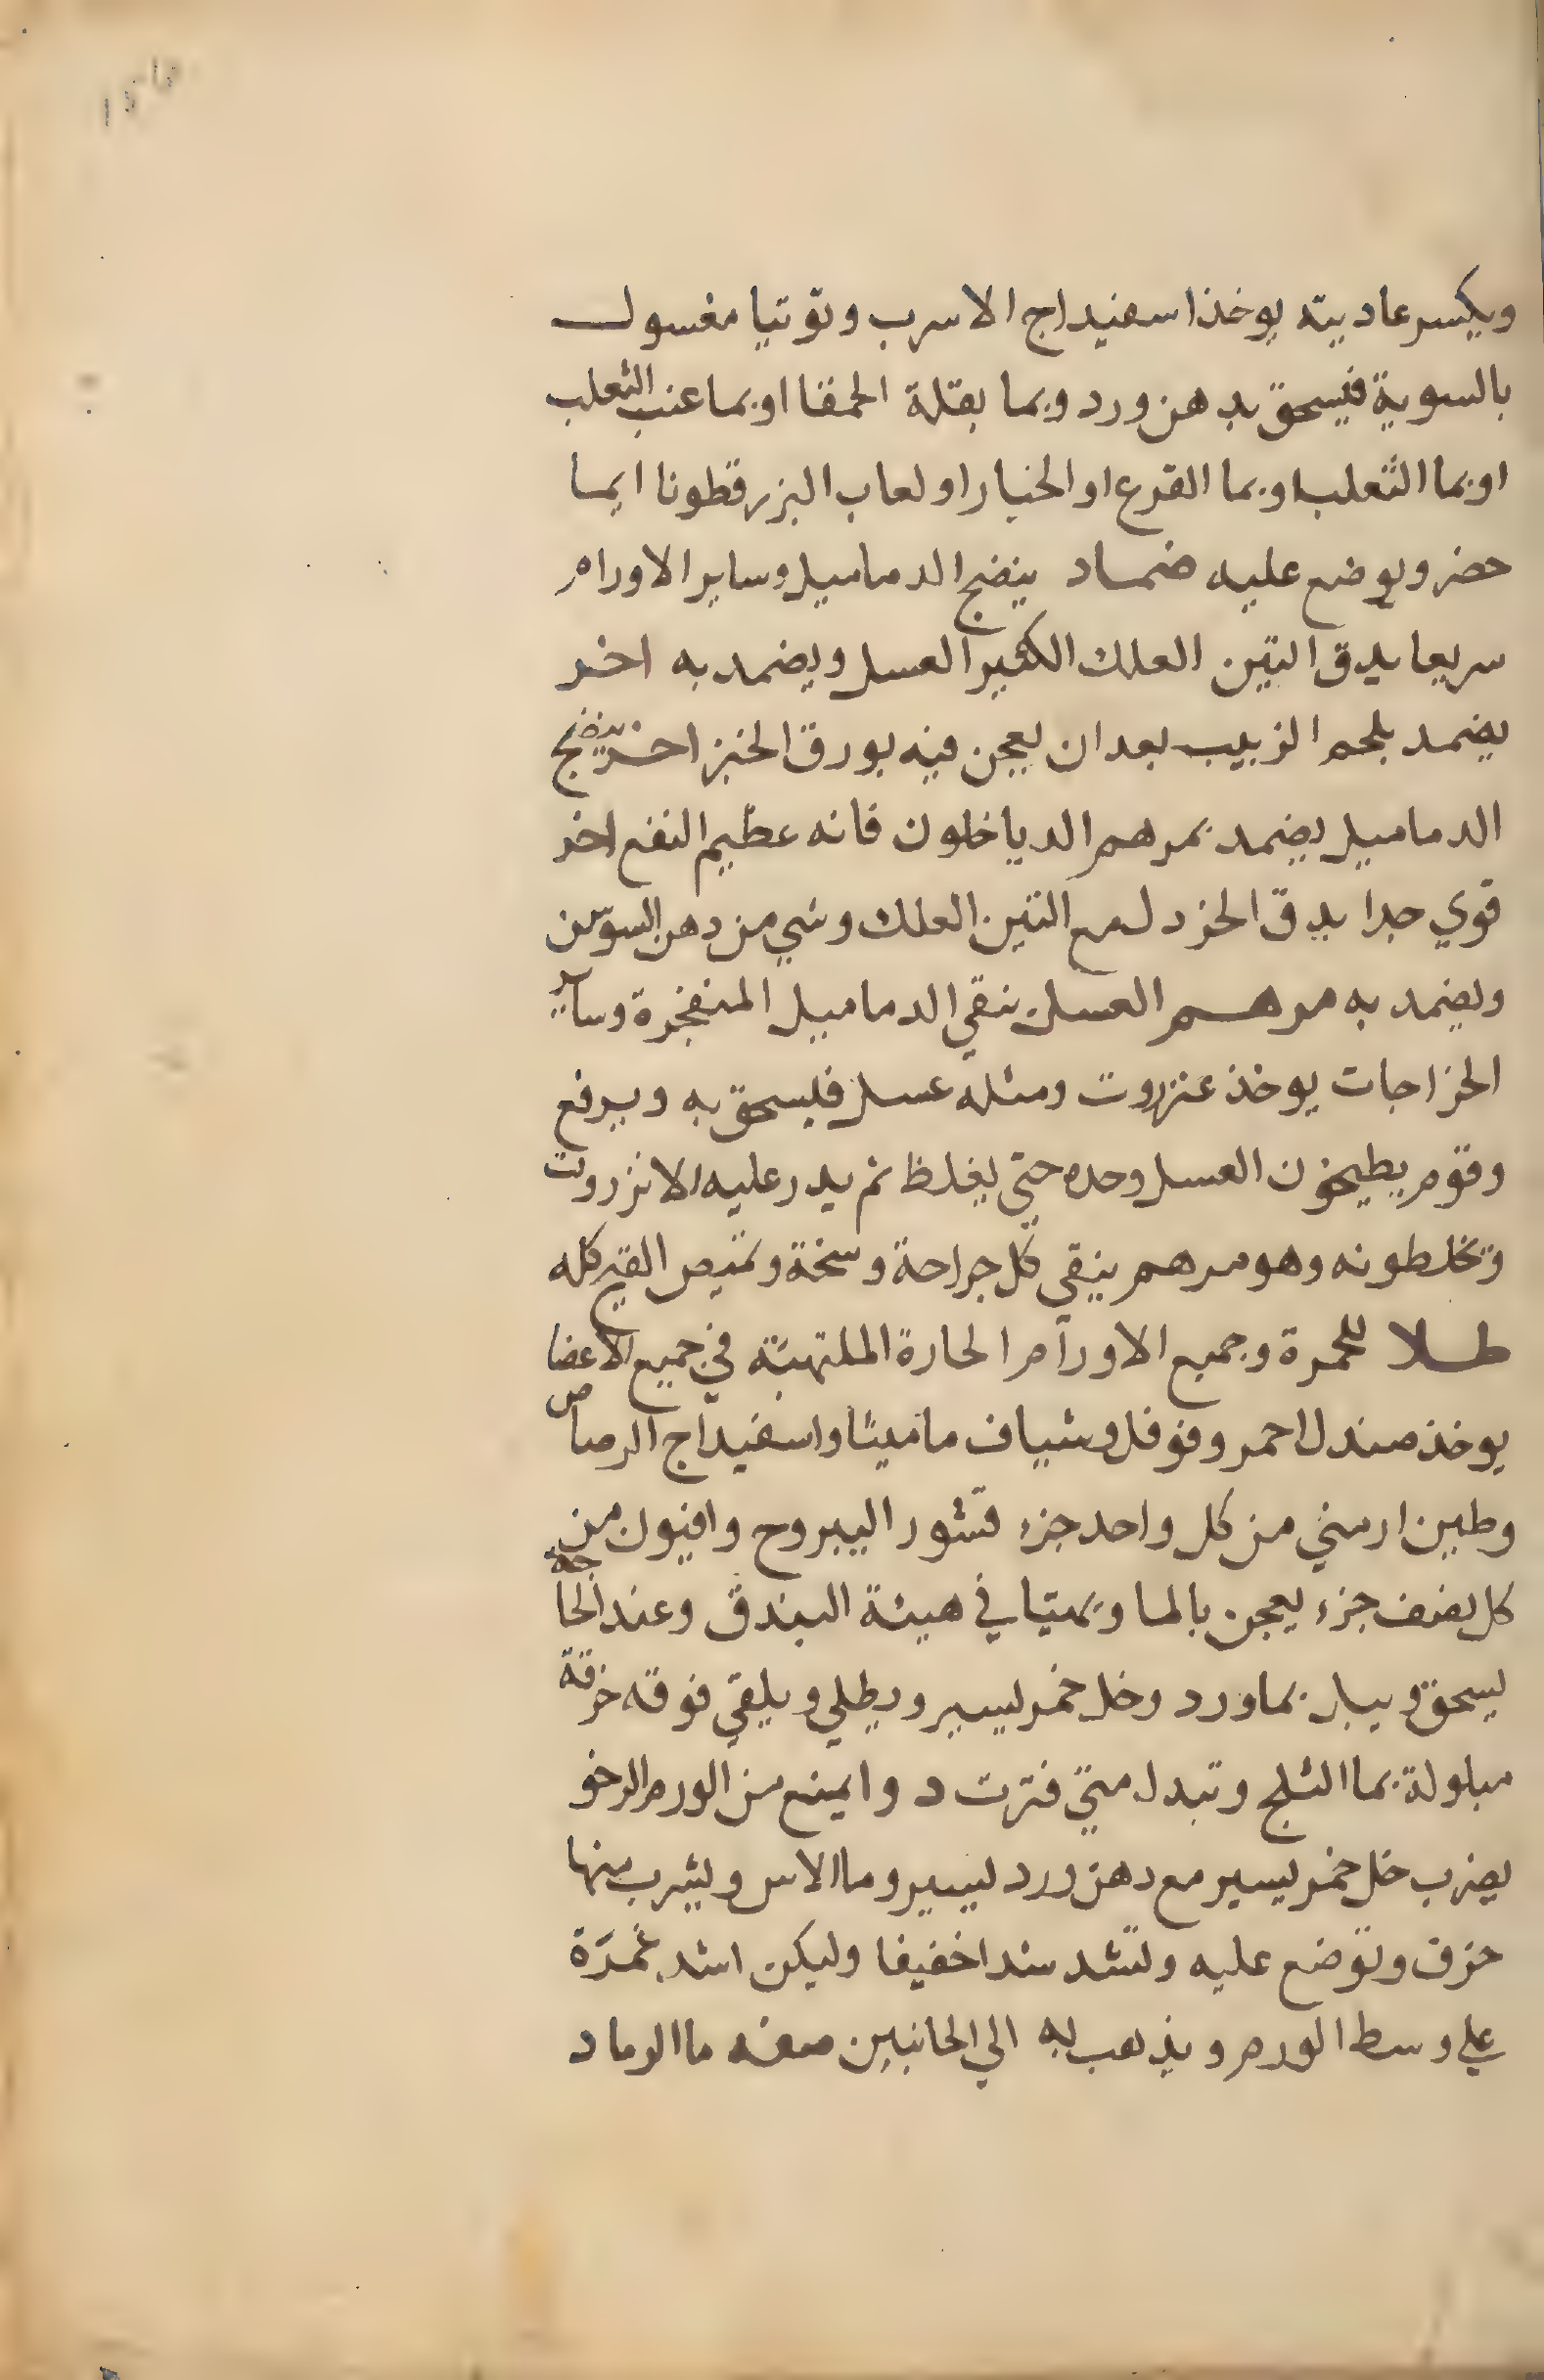 ويكسر عاديته يوخذ اسفيداج الاسرب وتوتيا مغسول
بالسوية فيسحق بدهن ورد وبما بقلة الحمقا او بما عنب الثعلب
او بما الثعلب او بما القرع او الخيار او لعاب البزرقطونا ايما
حضر ويوضع عليه ضماد ينضج الدماميل وساير الاورام
سريعا يدق التين العلك الكثير العسل ويضمد به اخر
يضمد بلحم الزبيب بعد ان يعجن فيه بورق الخبز اخر ينضج
الدماميل يضمد بمرهم الدياخلون فانه عظيم النفع اخر
قوي جدا يدق الخردل مع التين العلك وشي من دهن السوسن
ويضمد به مرهم العسل ينقي الدماميل المنفجرة وساير
الخراجات يوخذ عنزروت ومثله عسل فيسحق به ويرفع
وقوم يطبخون العسل وحده حتي يغلظ ثم يدر عليه الانزروت
وتخلطونه وهو مرهم ينقي كل جراحة وسخة وتمتص القيح كله
طلا للحمرة وجميع الاورام الحارة الملتهبة في جميع الاعضا
يوخذ صندل احمر وفوفل وشياف ماميثا واسفيداج الرصاص
وطين ارمني من كل واحد جزء قشور اليبروح وافيون من
كل نصف جزء يعجن بالما ويهيا في هيئة البندق وعند الحاجة
يسحق ويبل بماورد وخل خمر يسير ويطلي ويلقي فوقه خرقة
مبلولة بما الثلج وتبدل متي فترت دوا يمنع من الورم الرخو
يضرب خل خمر يسير مع دهن ورد يسير وما الاس ويشرب منها
خزق وتوضع عليه وتشد شدا خفيفا وليكن اشد غمزة
علي وسط الورم ويذهب به الي الجانبين صفه ما الرماد